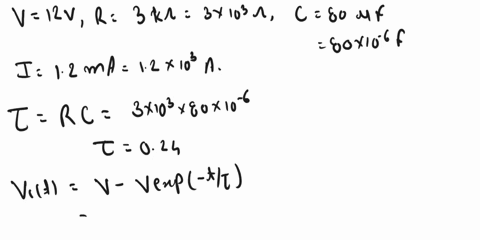 V = 12V, R = 3 kΩ = 3×10³ Ω, C = 80 μf
= 80×10⁻⁶ f
I = 1.2 mA = 1.2×10³ A.
τ = RC = 3×10³×80×10⁻⁶
τ = 0.24
Vc(t) = V - V exp(-t/τ)
=